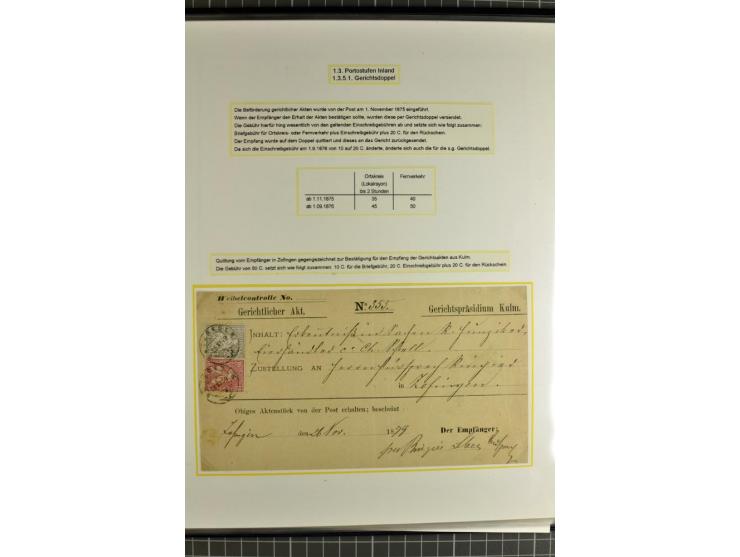 1.3. Portostufen Inland
1.3.5.1. Gerichtsdoppel
Die Beförderung gerichtlicher Akten wurde von der Post am 1. November 1875 eingeführt.
Wenn der Empfänger den Erhalt der Akten bestätigen sollte, wurden diese per Gerichtsdoppel versendet.
Die Gebühr hierfür hing wesentlich von den geltenden Einschreibgebühren ab und setzte sich wie folgt zusammen:
Briefgebühr für Ortskreis- oder Fernverkehr plus Einschreibgebühr plus 20 C. für den Rückschein.
Der Empfang wurde auf dem Doppel quittiert und dieses an das Gericht zurückgesendet.
Da sich die Einschreibgebühr am 1.9.1876 von 10 auf 20 C. änderte, änderte sich auch die für die s.g. Gerichtsdoppel.
Ortskreis Fernverkehr
(Lokalrayon)
bis 2 Stunden
ab 1.11.1875 35 40
ab 1.09.1876 45 50
Quittung vom Empfänger in Zofingen gegengezeichnet zur Bestätigung für den Empfang der Gerichtsakten aus Kulm.
Die Gebühr von 50 C. setzt sich wie folgt zusammen: 10 C. für die Briefgebühr, 20 C. Einschreibgebühr plus 20 C. für den Rückschein.
Weibelcontrolle No.
Gerichtlicher Akt. No. 355. Gerichtspräsidium Kulm.
INHALT:
ZUSTELLUNG AN
in Zofingen.
Obiges Aktenstück von der Post erhalten; bescheint
Zofingen am 26 Nov. 1879 Der Empfänger: